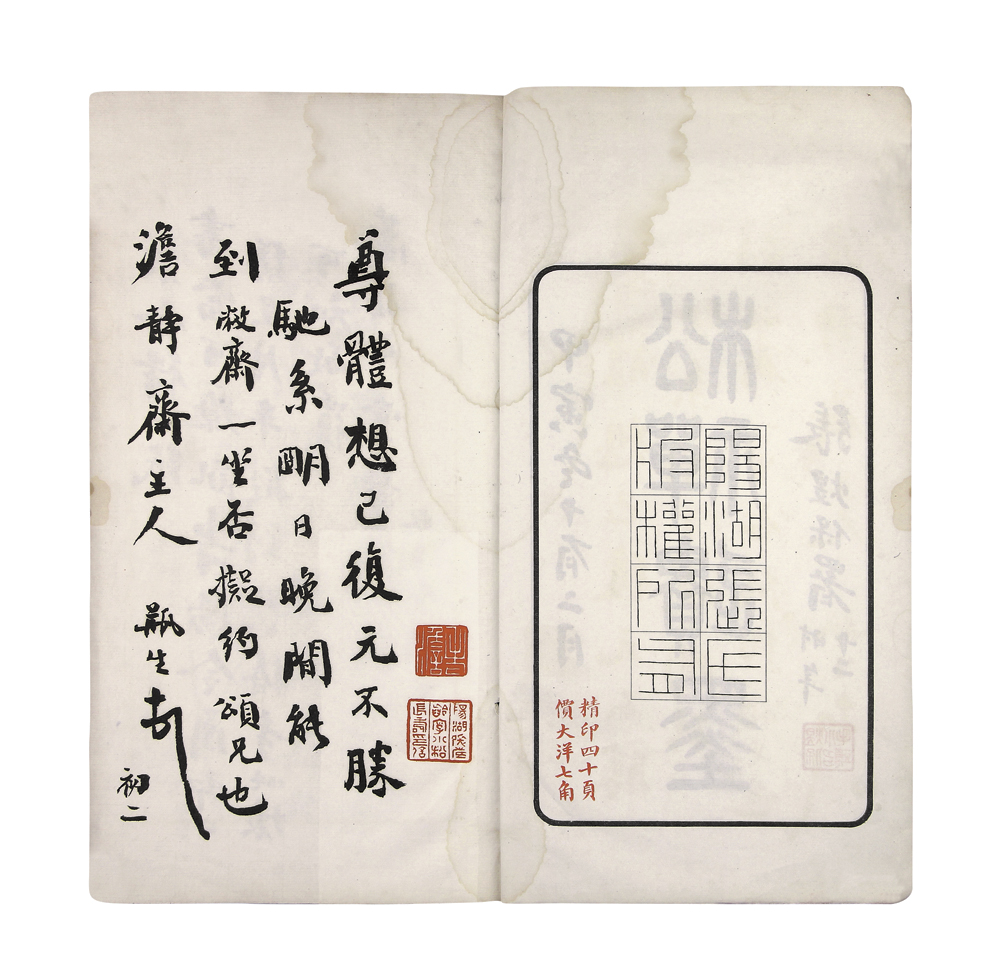 陽湖張氏
版權所有
精印四十頁
價大洋七角
尊體想已復元不勝
馳系明日晚間能
到敝齋一坐否擬約頌兄也
澹靜齋主人 瓶生
初二